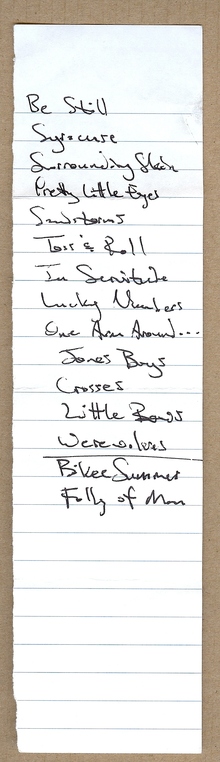 Be Still
Syracuse
Surrounding
Pretty Little Eyes
Sandstorms
Toss & Roll
In Servitude
Lucky Numbers
One Arm Around...
Jones Boys
Crosses
Little
Werewolves
Bikee Summer
Folly of Man